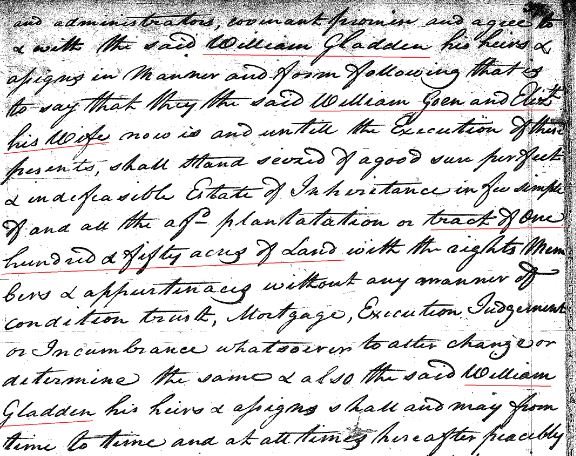 and administrators, covenant promise and agree to
& with the said William Gladden his heirs &
assigns in manner and form following that is
to say that they the said William Goen and Elizth
his Wife now is and untill the Execution of these
presents, shall stand seozd of a good sure perfect
& indefeasible Estate of Inheritance in fee simple
of and all the afsd plantatation or tract of One
hundred & fifty acres of Land with the rights Mem
bers & appurtinaces without any manner of
condition trust, Mortgage, Execution, Judgement
or Incumbrance whatsoever to alter change or
determine the same & also the said William
Gladden his heirs & assigns shall and may from
time to time and at all times hereafter peacibly